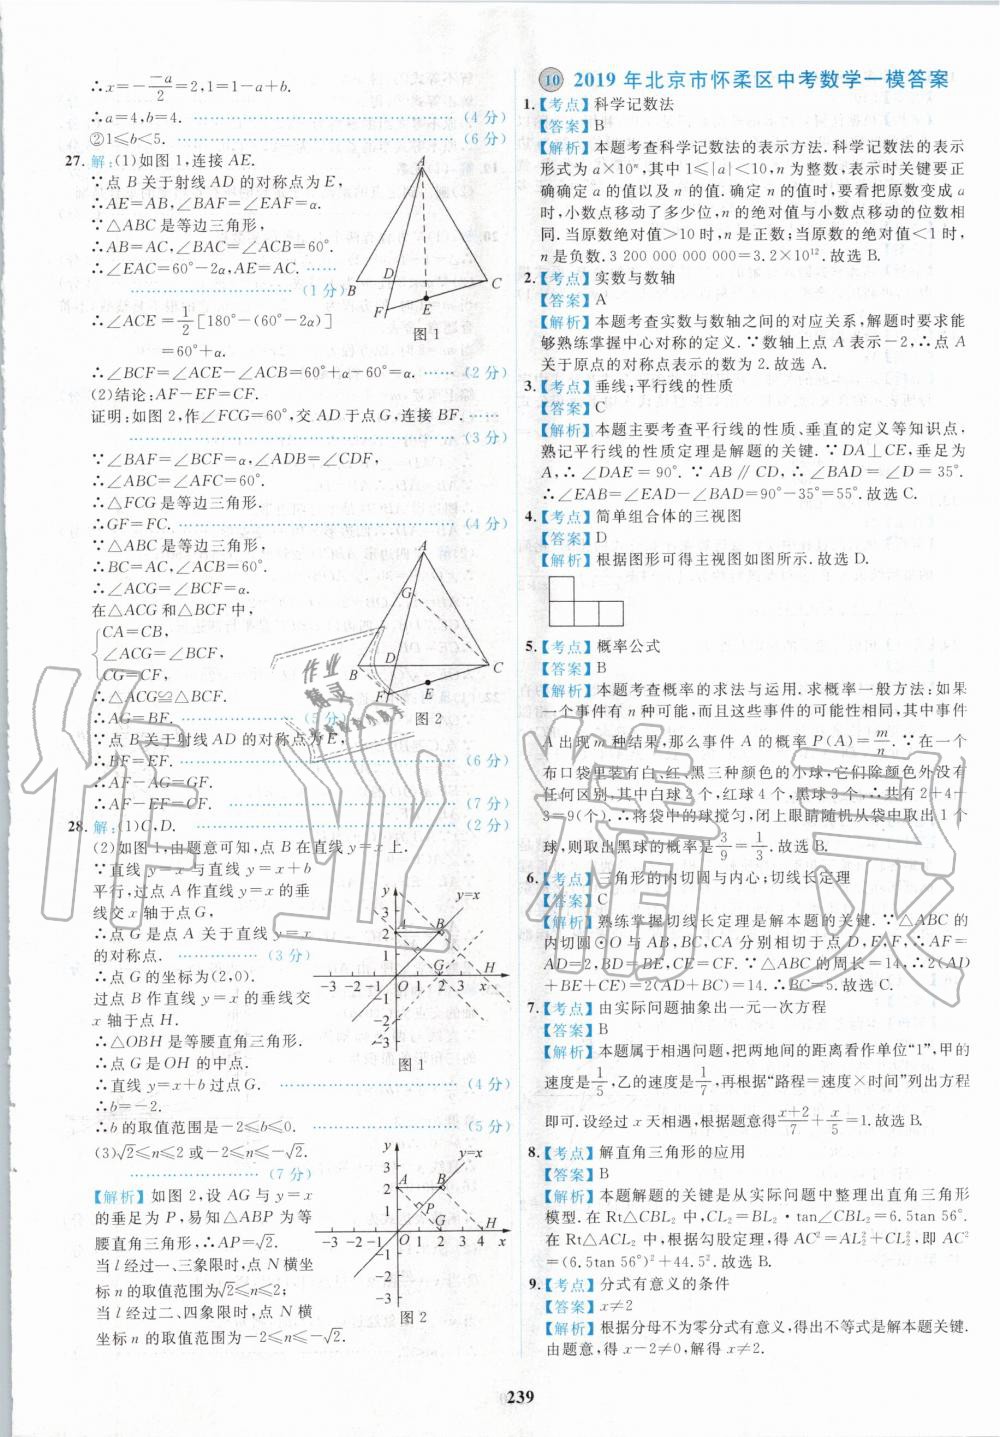 ∴x=－(－a)/2=2,1=1－a+b.
∴a=4,b=4. (4 分)
②1≤b<5. (6 分)
27. 解:(1)如图 1,连接 AE.
∵点 B 关于射线 AD 的对称点为 E,
∴AE=AB,∠BAF=∠EAF=α.
∵△ABC 是等边三角形,
∴AB=AC,∠BAC=∠ACB=60°.
∴∠EAC=60°－2α,AE=AC. ……
(1 分)
∴∠ACE=1/2[180°－(60°－2α)]
=60°+α.
∴∠BCF=∠ACE－∠ACB=60°+α－60°=α. (2 分)
(2)结论:AF－EF=CF.
证明:如图 2,作∠FCG=60°,交 AD 于点 G,连接 BF. ……
(3 分)
∵∠BAF=∠BCF=α,∠ADB=∠CDF,
∴∠ABC=∠AFC=60°.
∴△FCG 是等边三角形.
∴GF=FC. (4 分)
∵△ABC 是等边三角形,
∴BC=AC,∠ACB=60°.
∴∠ACG=∠BCF=α.
在△ACG 和△BCF 中,
CA=CB,
∠ACG=∠BCF,
CG=CF,
∴△ACG≌△BCF.
∴AG=BF. (5 分)
∵点 B 关于射线 AD 的对称点为 E,
∴BF=EF. (6 分)
∴AF－AG=GF.
∴AF－EF=CF. (7 分)
A
D
B
C
F
E
图 1
A
G
D
B
C
F
E
图 2
28. 解:(1)C,D. (2 分)
(2)如图 1,由题意可知,点 B 在直线 y=x 上.
∵直线 y=x 与直线 y=x+b
平行,过点 A 作直线 y=x 的垂
线交 x 轴于点 G,
∴点 G 是点 A 关于直线 y=x
的对称点. (3 分)
∴点 G 的坐标为(2,0).
过点 B 作直线 y=x 的垂线交
x 轴于点 H.
∴△OBH 是等腰直角三角形.
∴点 G 是 OH 的中点.
∴直线 y=x+b 过点 G. (4 分)
∴b=－2.
∴b 的取值范围是－2≤b≤0. (5 分)
(3)√2≤n≤2 或－2≤n≤－√2.
(7 分)
【解析】如图 2,设 AG 与 y=x
的垂足为 P,易知△ABP 为等
腰直角三角形,∴AP=√2.
当 l 经过一、三象限时,点 N 横坐
标 n 的取值范围为√2≤n≤2;
当 l 经过二、四象限时,点 N 横
坐标 n 的取值范围为－2≤n≤－√2.
y
y=x
3
2
1
A
B
G
H
－3 －2 －1 O 1 2 3 4 x
－1
－2
－3
图 1
y
y=x
3
2
1
A
B
P
G
H
－3 －2 －1 O 1 2 3 4 x
－1
－2
－3
图 2
10 2019 年北京市怀柔区中考数学一模答案
1.【考点】科学记数法
【答案】B
【解析】本题考查科学记数法的表示方法. 科学记数法的表示
形式为 a×10ⁿ,其中 1≤|a|<10,n 为整数,表示时关键要正
确确定 a 的值以及 n 的值. 确定 n 的值时,要看把原数变成 a
时,小数点移动了多少位,n 的绝对值与小数点移动的位数相
同. 当原数绝对值>10 时,n 是正数;当原数的绝对值<1 时,
n 是负数. 3 200 000 000 000=3.2×10¹². 故选 B.
2.【考点】实数与数轴
【答案】A
【解析】本题考查实数与数轴之间的对应关系,解题时要求能
够熟练掌握中心对称的定义. ∵数轴上点 A 表示－2,∴点 A
关于原点的对称点表示的数为 2. 故选 A.
3.【考点】垂线;平行线的性质
【答案】C
【解析】本题主要考查平行线的性质、垂直的定义等知识点,
熟记平行线的性质定理是解题的关键. ∵DA⊥CE,垂足为
A,∴∠DAE=90°. ∵AB∥CD,∴∠BAD=∠D=35°.
∴∠EAB=∠EAD－∠BAD=90°－35°=55°. 故选 C.
4.【考点】简单组合体的三视图
【答案】D
【解析】根据图形可得主视图如图所示. 故选 D.
5.【考点】概率公式
【答案】B
【解析】本题考查概率的求法与运用. 求概率一般方法:如果
一个事件有 n 种可能,而且这些事件的可能性相同,其中事件
A 出现 m 种结果,那么事件 A 的概率 P(A)=m/n. ∵在一个
布口袋里装有白、红、黑三种颜色的小球,它们除颜色外没有
任何区别,其中白球 2 个,红球 4 个,黑球 3 个,∴共有 2+4+
3=9(个). ∴将袋中的球搅匀,闭上眼睛随机从袋中取出 1 个
球,则取出黑球的概率是3/9=1/3. 故选 B.
6.【考点】三角形的内切圆与内心;切线长定理
【答案】C
【解析】熟练掌握切线长定理是解本题的关键. ∵△ABC 的
内切圆⊙O 与 AB,BC,CA 分别相切于点 D,E,F,∴AF=
AD=2,BD=BE,CE=CF. ∵△ABC 的周长=14,∴2(AD
+BE+CE)=2(AD+BC)=14. ∴BC=5. 故选 C.
7.【考点】由实际问题抽象出一元一次方程
【答案】B
【解析】本题属于相遇问题,把两地间的距离看作单位“1”,甲的
速度是1/5,乙的速度是1/7,再根据“路程=速度×时间”列出方程
即可. 设经过 x 天相遇,根据题意得(x+2)/7+x/5=1. 故选 B.
8.【考点】解直角三角形的应用
【答案】B
【解析】本题解题的关键是从实际问题中整理出直角三角形
模型. 在 Rt△CBL₂ 中,CL₂=BL₂·tan∠CBL₂=6.5tan 56°.
在 Rt△ACL₂ 中,根据勾股定理,得 AC²=AL₂²+CL₂²,即 AC²
=(6.5tan 56°)²+44.5². 故选 B.
9.【考点】分式有意义的条件
【答案】x≠2
【解析】根据分母不为零分式有意义,得出不等式是解本题关键.
由题意,得 x－2≠0,解得 x≠2.
239
作业精灵